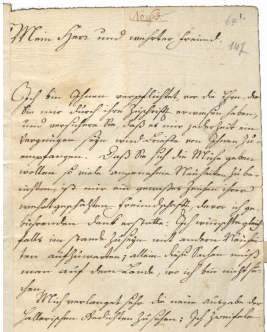 No. 63.
1.
147
Mein Herr und wehrter Freund.
Ich bin Ihnen verpflichtet, vor die Ehre, die
Sie mir durch ihre Zuschrifft erwiesen haben,
und versichere Sie, daß es mir jederzeit ein
Vergnügen seyn wird Briefe von Ihnen zu
empfangen. Daß Sie sich die Mühe geben
wollen so viele angenehme Neuheiten zu be-
richten, ist mir ein gewisses Zeichen ihrer
wehrtgeschätzten Freundschafft, davor ich ge-
bührenden Dank erstatte. Ich wünschte gleich-
falls im stande zu seyn mit andern Neuhei-
ten aufzuwarten; allein diese Sachen muß
man auf dem Lande, wo ich bin nicht su-
chen.
Mich verlanget sehr die neue ausgabe der
Hallerischen Gedichten zu sehen; Ich zweifele